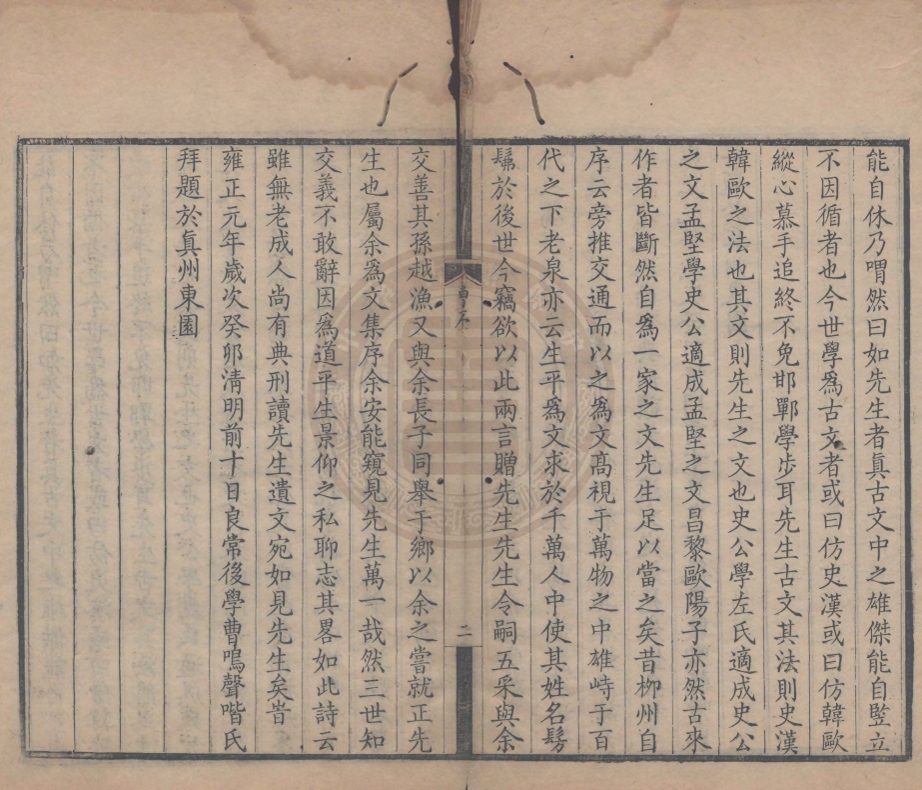 能自休乃喟然曰如先生者眞古文中之雄傑能自豎立
不因循者也今世學爲古文者或曰仿史漢或曰仿韓歐
縱心慕手追終不免邯鄲學步耳先生古文其法則史漢
韓歐之法也其文則先生之文也史公學左氏適成史公
之文孟堅學史公適成孟堅之文昌黎歐陽子亦然古來
作者皆斷然自爲一家之文先生足以當之矣昔柳州自
序云旁推交通而以之爲文髙視于萬物之中雄峙于百
代之下老泉亦云生平爲文求於千萬人中使其姓名髣
髴於後世今竊欲以此兩言贈先生先生令嗣五采與余
曹序
二
交善其孫越漁又與余長子同舉于鄉以余之嘗就正先
生也屬余爲文集序余安能窺見先生萬一哉然三世知
交義不敢辭因爲道平生景仰之私聊志其畧如此詩云
雖無老成人尚有典刑讀先生遺文宛如見先生矣旹
雍正元年歲次癸卯淸明前十日良常後學曹鳴聲喈氏
拜題於眞州東園